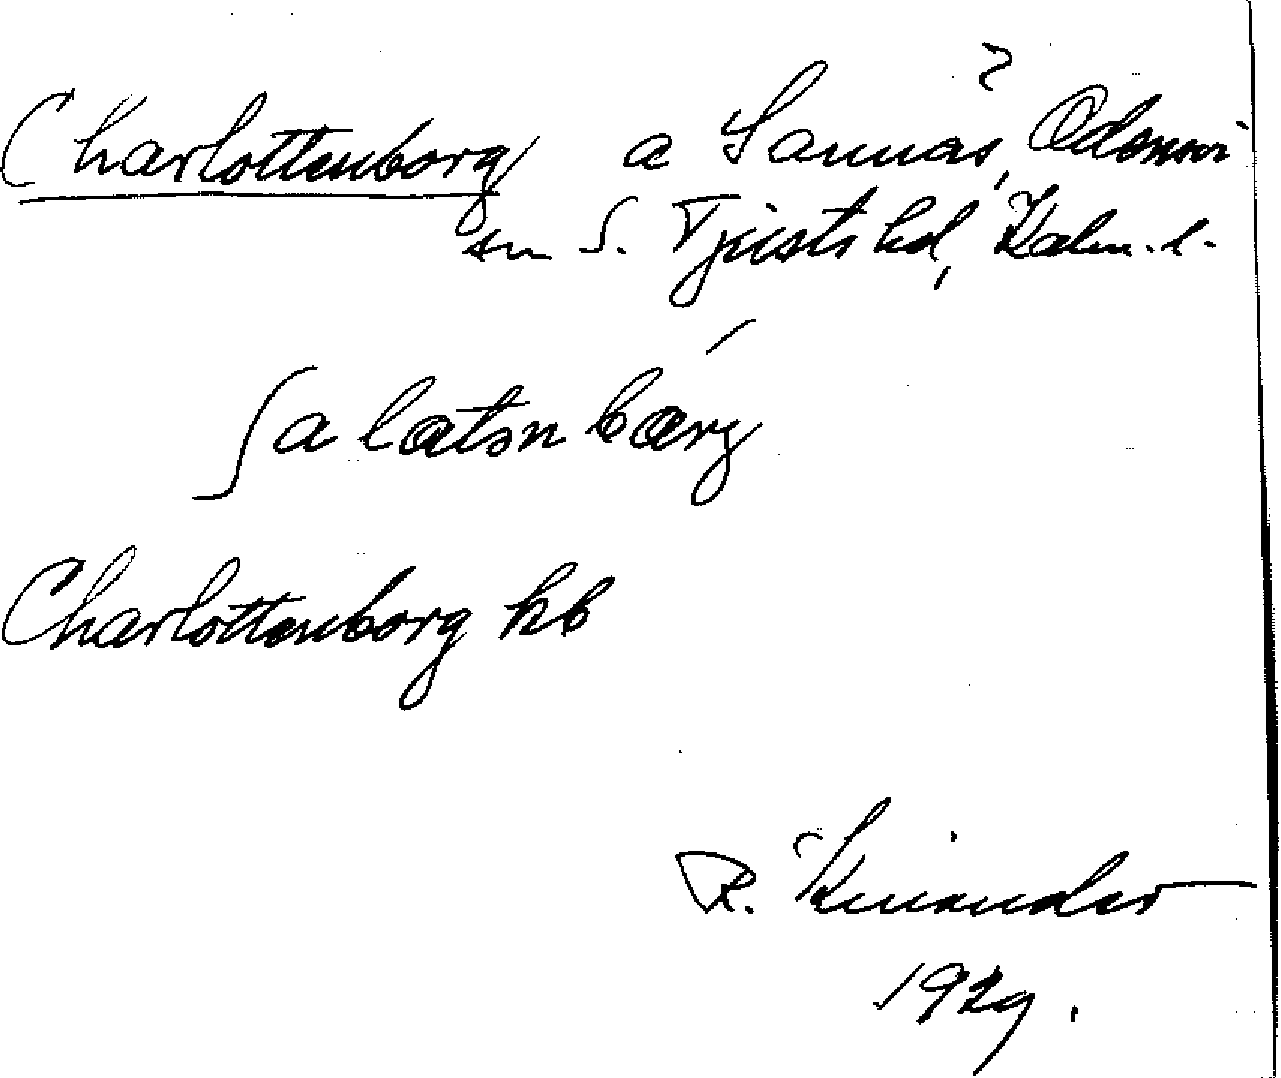 Charlottenborg a Sannås, Odensvi
sn S. Tjusts hd, Kalm. l.
ʃalɔtənbɔrj
Charlottenborg kb
R. Kinander
1929.